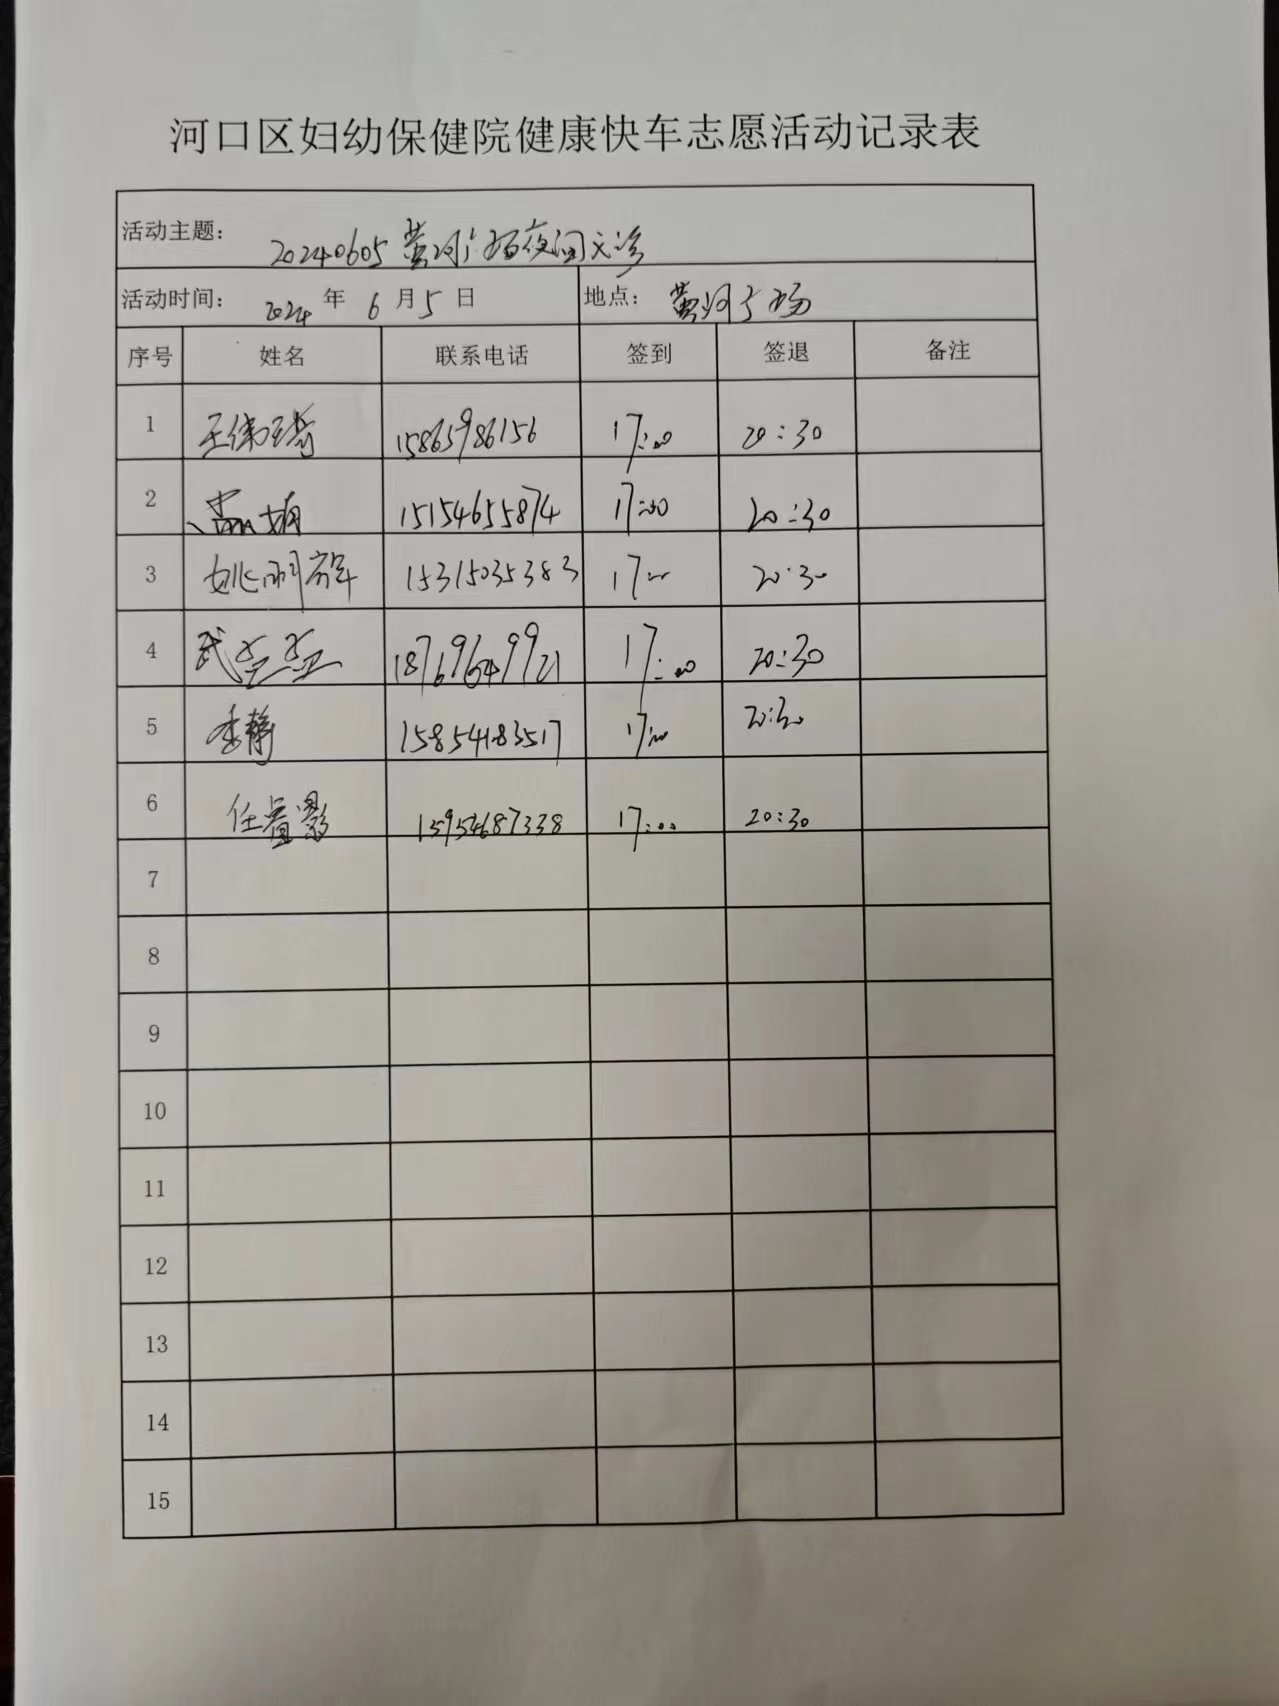 河口区妇幼保健院健康快车志愿活动记录表
活动主题： 20240605 黄河广场夜间义诊
活动时间： 2024 年 6 月 5 日 地点： 黄河广场
序号 姓名 联系电话 签到 签退 备注
1 15865986156 17:00 20:30
2 15154655874 17:00 20:30
3 15315035383 17:00 20:30
4 武莹莹 18769649921 17:00 20:30
5 李静 15854183517 17:00 20:30
6 15954687338 17:00 20:30
7
8
9
10
11
12
13
14
15